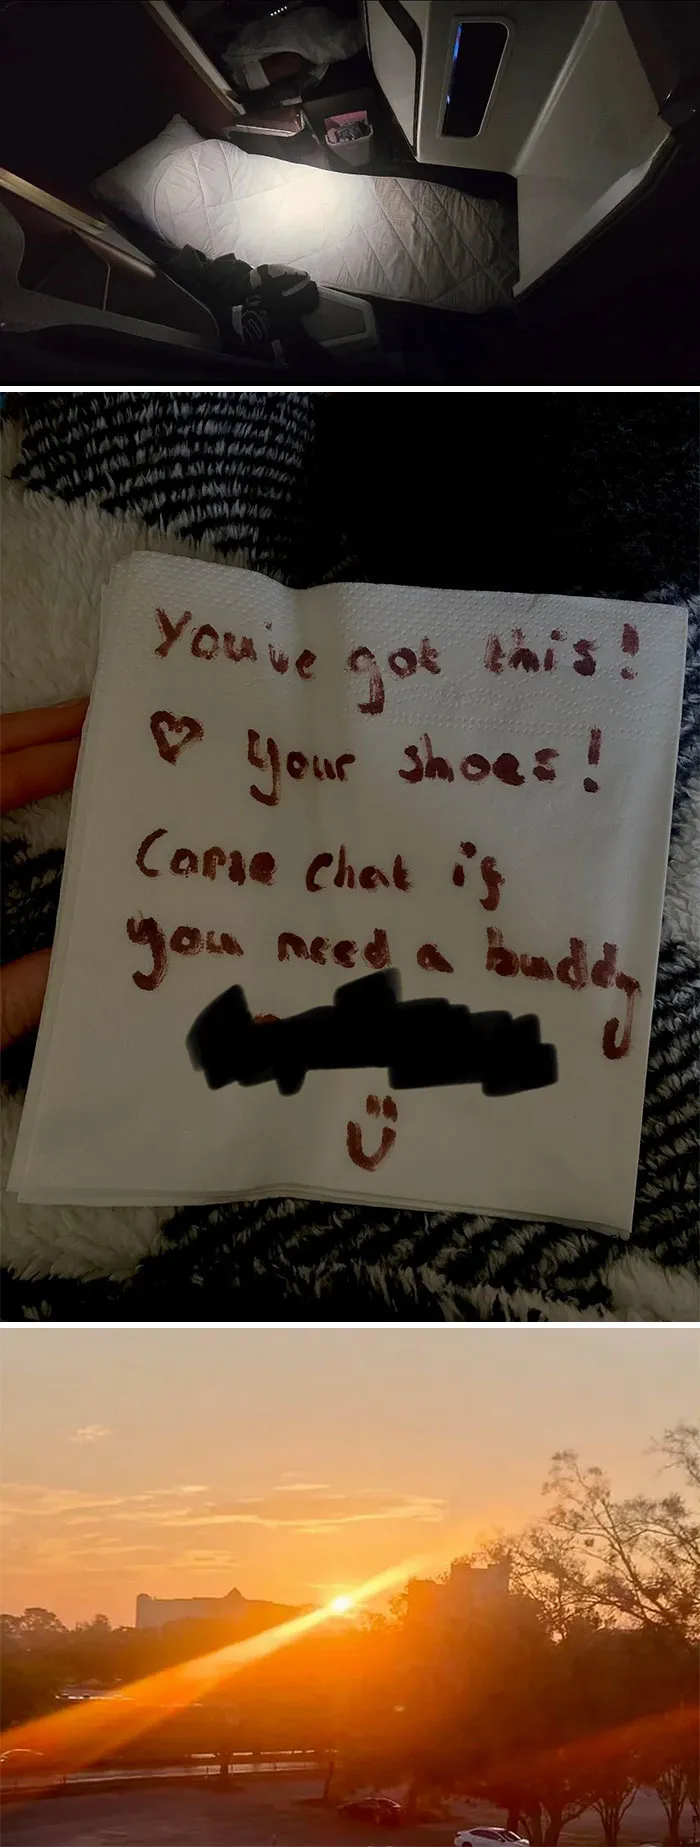 you've got this!
♡ your shoes!
Come chat if
you need a buddy